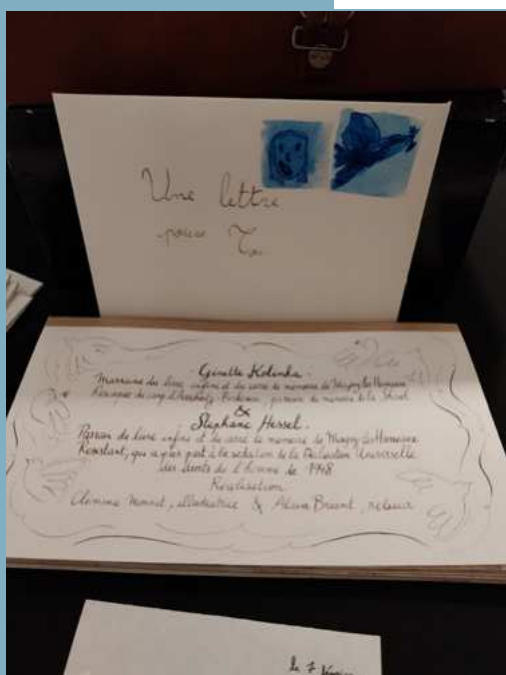 Une lettre
pour Toi
Ginette Kolinka.
Marraine du livre infini et du carré de mémoire de Magny les Hameaux
Rescapée du camp d'Auschwitz-Birkenau, passeuse de mémoire de la Shoah
&
Stéphane Hessel.
Parrain du livre infini et du carré de mémoire de Magny les Hameaux
Résistant, qui a pris part à la rédaction de la Déclaration Universelle
des droits de l'homme de 1948
Réalisation
illustratrice & Alain relieur
le 7 février